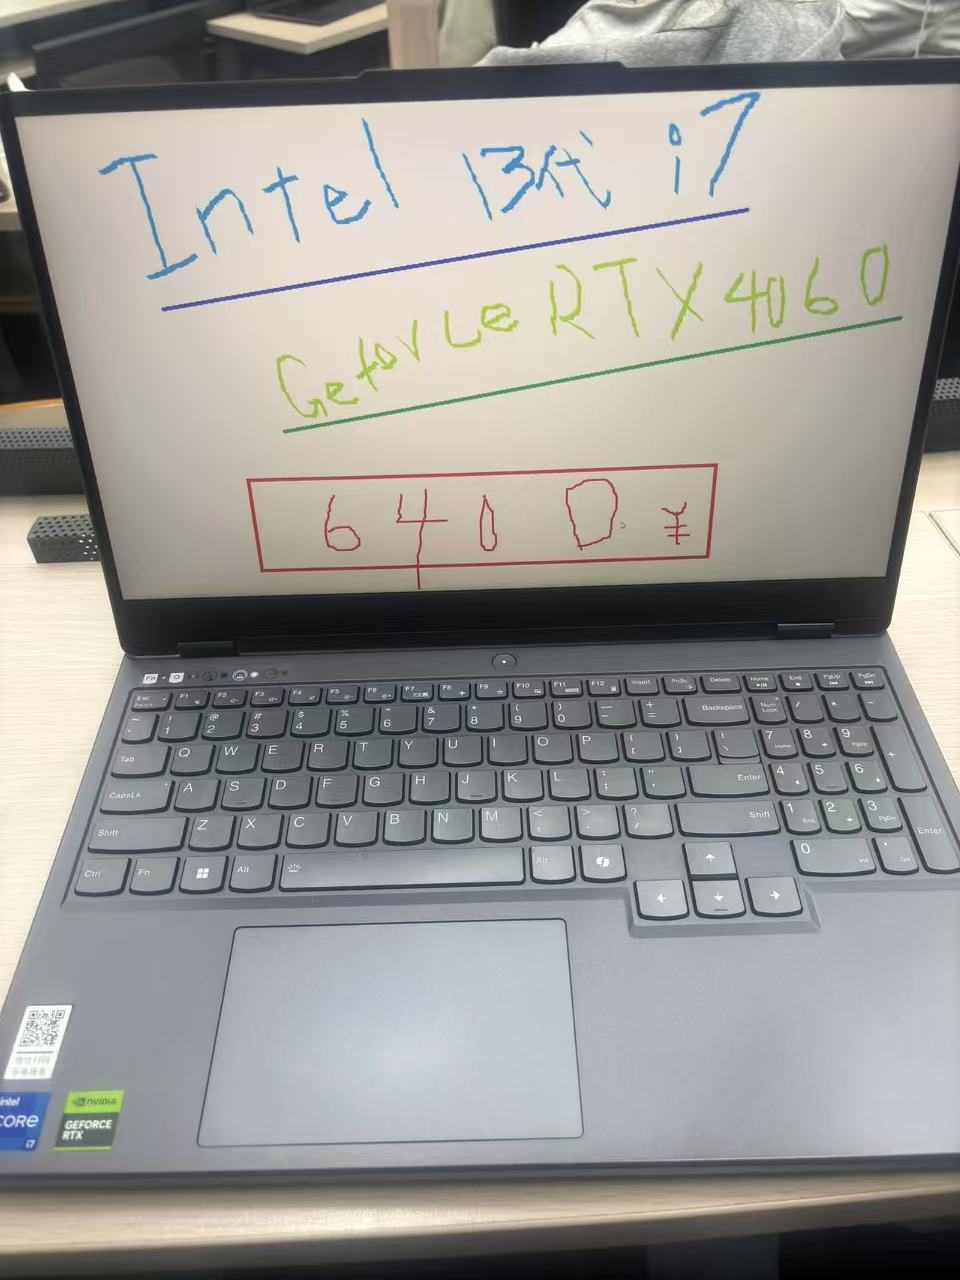 Intel 13代 i7
GeforceRTX4060
6400¥
Esc F1 F2 F3 F4 F5 F6 F7 F8 F9 F10 F11 F12 Insert PrtSc Delete Home End PgUp PgDn
~ ! 1 @ 2 # 3 $ 4 % 5 ^ 6 & 7 * 8 ( 9 ) 0 — - + = Backspace Num Lock / * -
Tab Q W E R T Y U I O P { [ } ] | \ 7 Home 8 9 PgUp +
CapsLk A S D F G H J K L : ; " ' Enter 4 5 6
Shift Z X C V B N M < , > . ? / Shift 1 End 2 3 PgDn Enter
Ctrl Fn Alt Alt 0 Ins . Del
intel
CORE
i7
NVIDIA
GEFORCE
RTX